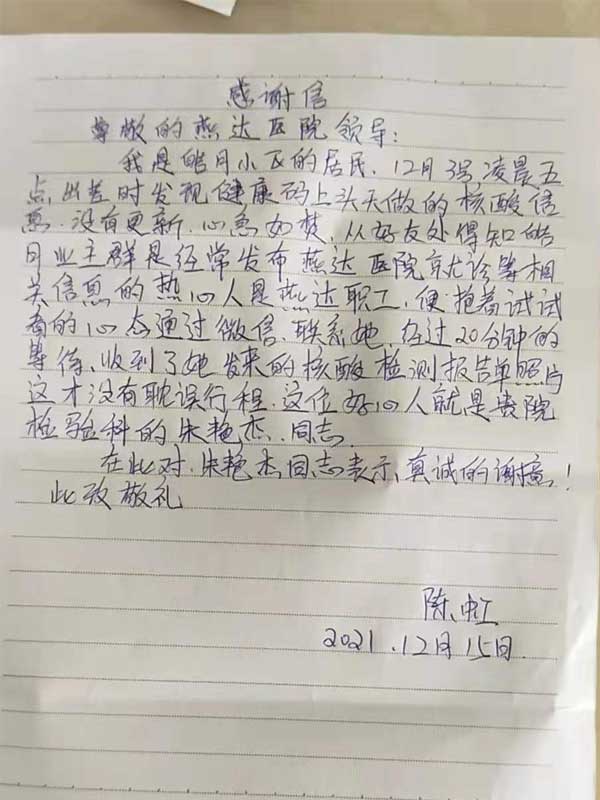 感谢信
尊敬的燕达医院领导：
我是皓月小区的居民，12月3号凌晨五
点出差时发现健康码上头天做的核酸信
息．没有更新．心急如焚．从好友处得知皓
月业主群是经常发布燕达医院就诊等相
关信息的热心人是燕达职工，便抱着试试
看的心态通过微信．联系她，经过20分钟的
等待，收到了她发来的核酸检测报告单照片
这才没有耽误行程．这位好心人就是贵院
检验科的朱艳杰．同志．
在此对．朱艳杰同志表示．真诚的谢意！
此致敬礼
陈虹
2021．12月15日